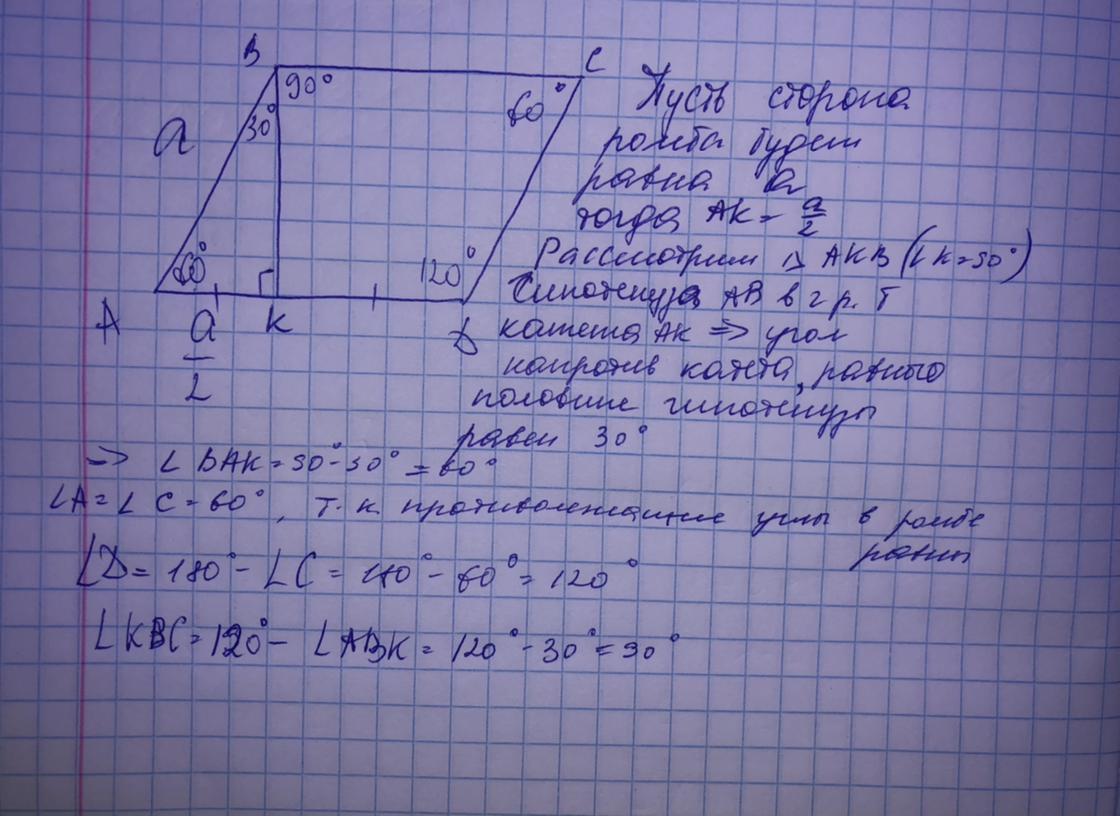 B
C
90°
30°
60°
a
60°
120°
A
a/2
K
D
Пусть сторона
ромба будет
равна a
тогда AK = a/2
Рассмотрим ⊿ AKB (∠K=90°)
Гипотенуза AB в 2 р. Т
катета AK => угол
напротив катета, равного
половине гипотенузы
равен 30°
=> ∠BAK = 90° - 30° = 60°
∠A = ∠C = 60°, т.к. противолежащие углы в ромбе
равны
∠D = 180° - ∠C = 180° - 60° = 120°
∠KBC = 120° - ∠ABK = 120° - 30° = 90°